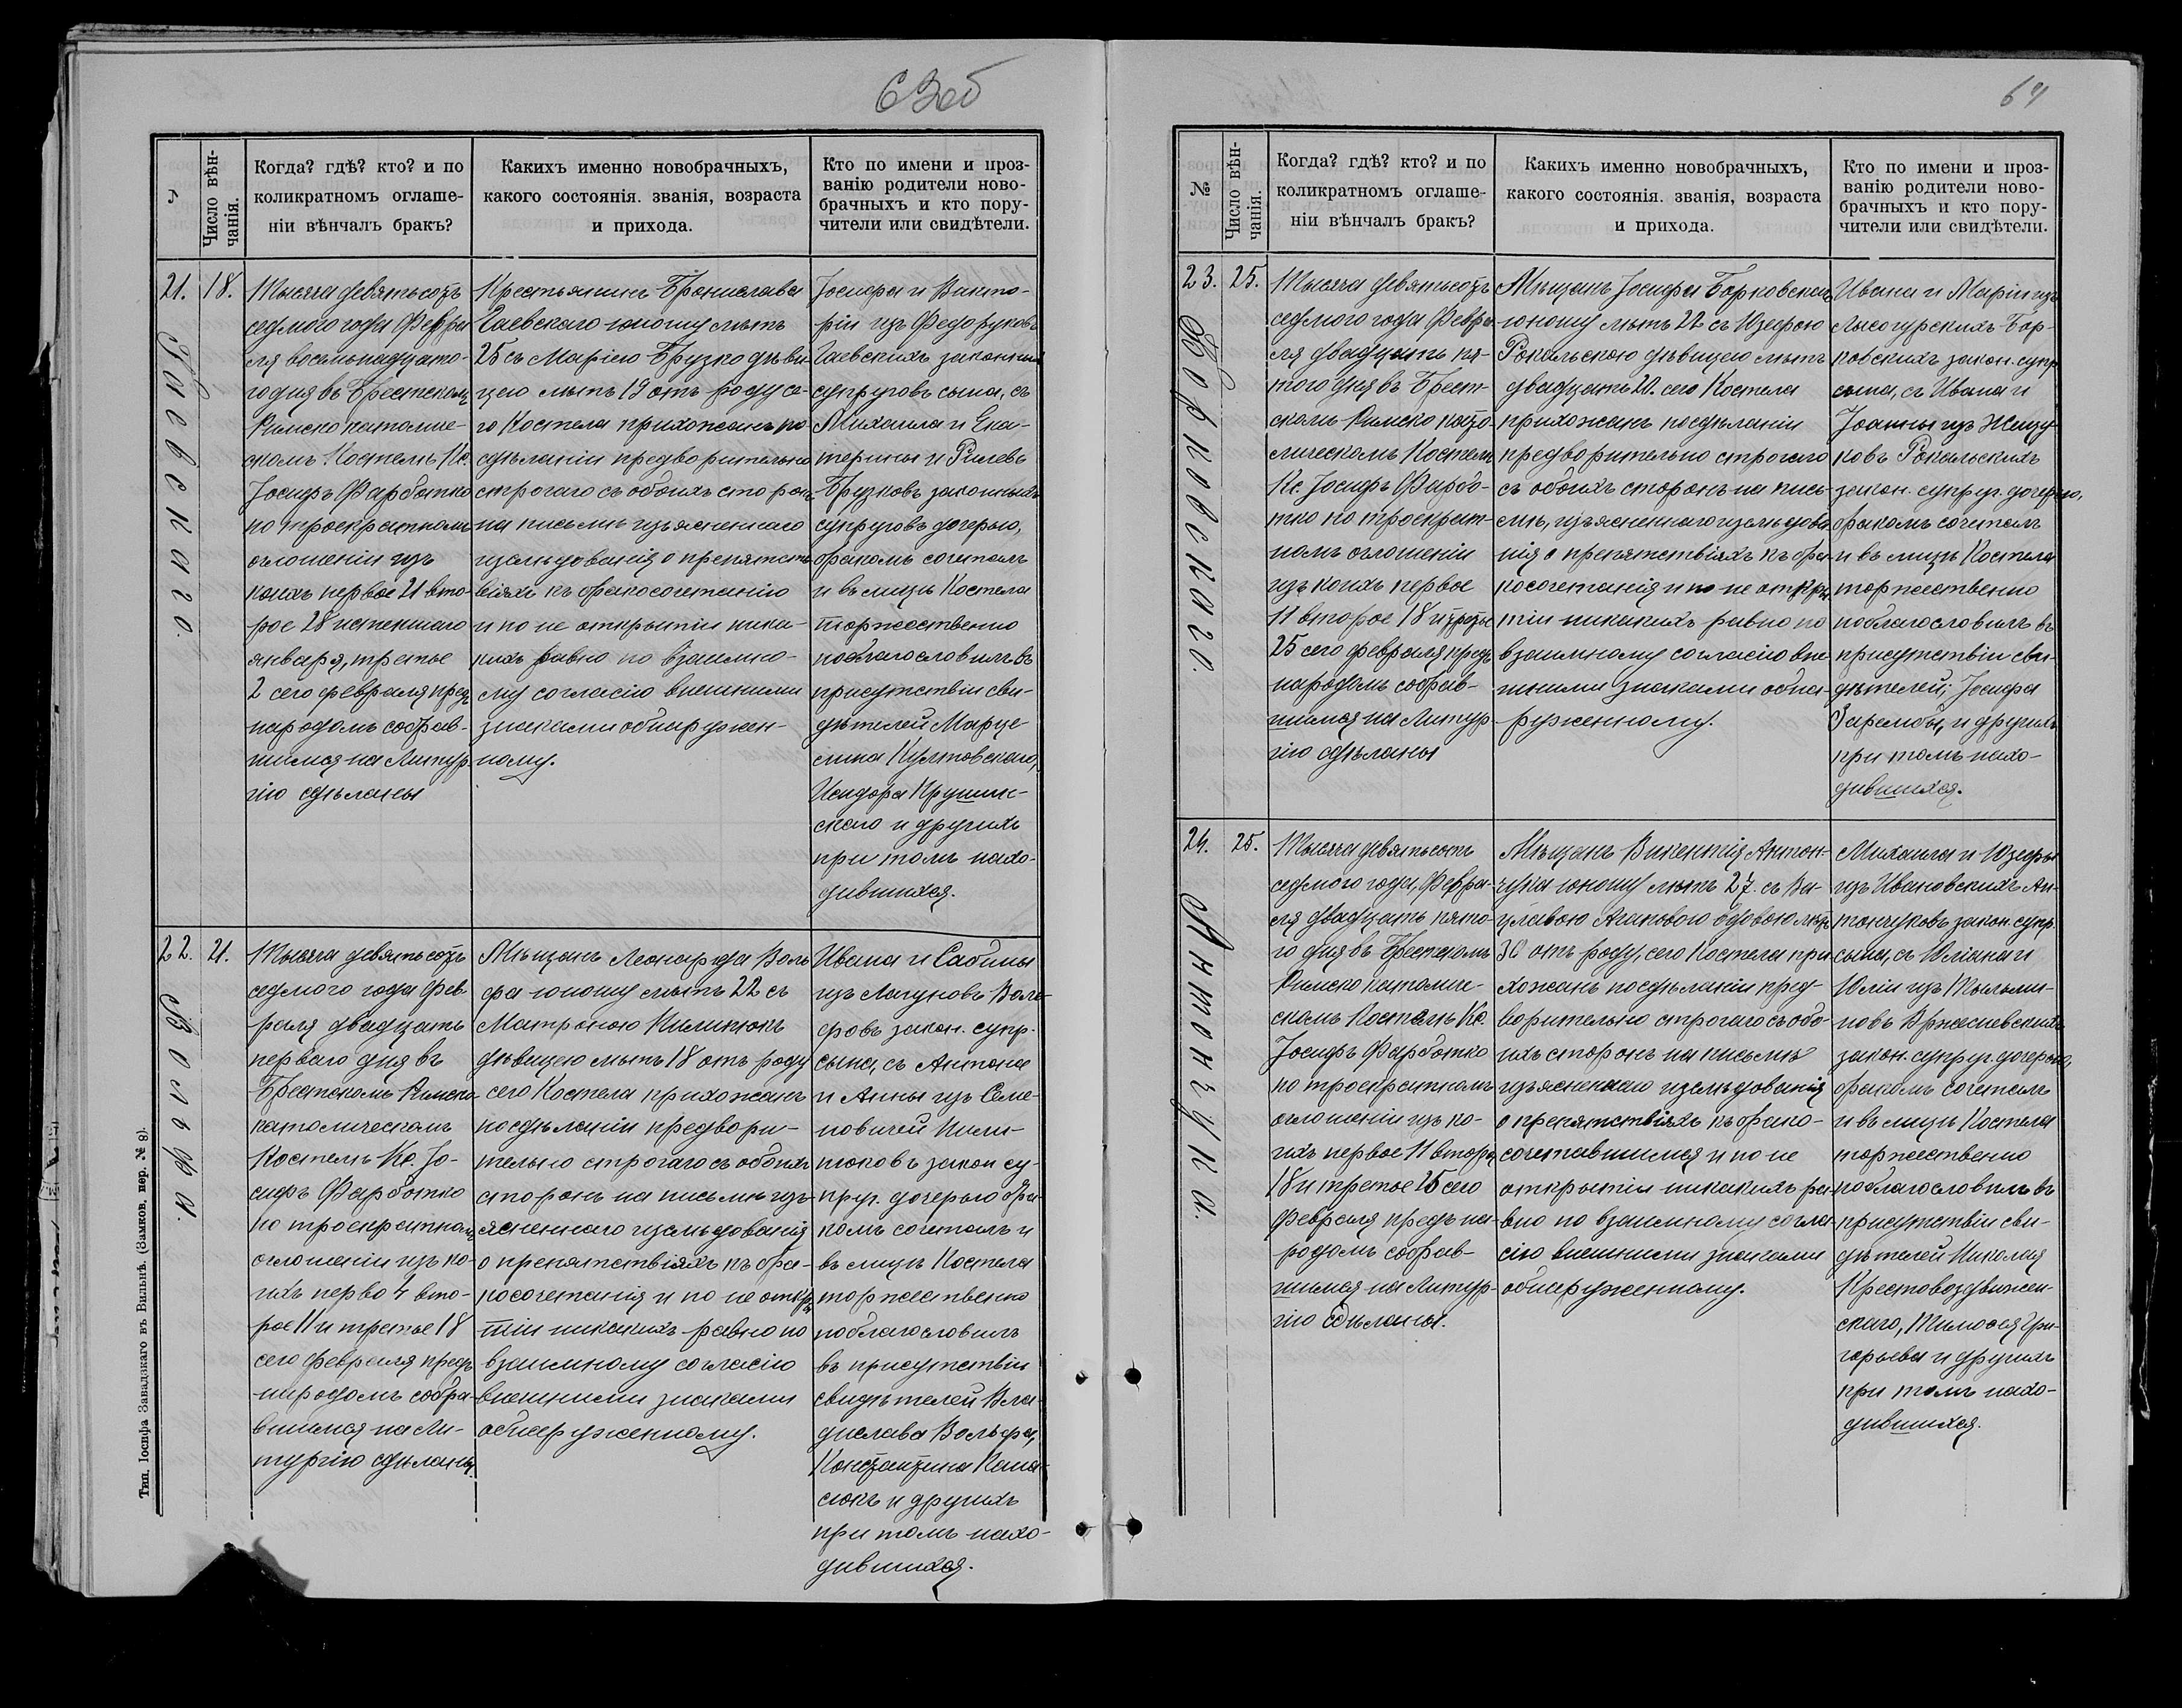 63об
№
Число вѣн-
чанія.
Когда? гдѣ? кто? и по
коликратномъ оглаше-
ніи вѣнчалъ бракъ?
Какихъ именно новобрачныхъ,
какого состоянія. званія, возраста
и прихода.
Кто по имени и проз-
ванію родители ново-
брачныхъ и кто пору-
чители или свидѣтели.
21.
Гаевскаго.
18.
Тысяча девятьсотъ
седмого года Февра
ля восемьнадцато-
го дня въ Брестскомъ
Римско католиче-
скомъ Костелѣ Кс.
Іосифъ Фарботко
по троекратномъ
оглошеніи изъ
коихъ первое 21 вто-
рое 28 истекшаго
января, третье
2 сего февраля предъ
народомъ собрав-
шимся на Литур
гію сдѣланы
Крестьянинъ Бронислава
Гаевскаго юношу лѣтъ
25 съ Маріею Брузко дѣви-
цею лѣтъ 19 отъ роду се-
го Костела прихожанъ по
сдѣланіи предворительно
строгаго съ обоихъ сторонъ
на письмѣ изъясненнаго
изслѣдованія о препятст
віяхъ къ бракосочетанію
и по не открытіи ника-
кихъ равно по взаимно-
му согласію внешними
знаками обнаружен-
ному.
Іосифа и Викто-
ріи изъ Федоруковъ
Гаевскихъ законныхъ
супруговъ сына, съ
Михаила и Ека-
терины и Рилевъ
Брузковъ законныхъ
супруговъ дочерью,
бракомъ сочеталъ
и въ лицѣ Костела
торжественно
поблагословилъ въ
присутствіи сви-
дѣтелей, Марце-
лина Культовскаго,
Исидора Крушин-
скаго и другихъ
при томъ нахо-
дившихся.
22.
Вольфа.
21.
Тысяча девятьсотъ
седмого года Фев-
раля двадцать
перваго дня въ
Брестскомъ Римско
католическомъ
Костелѣ Кс. Іо-
сифъ Фарботко
по троекратномъ
оглошеніи изъ ко-
ихъ перво 4 вто-
рое 11 и третье 18
сего февраля предъ
народомъ собра-
вшимся на Ли-
тургію сдѣланы
Мѣщанъ Леонарда Воль
фа юношу лѣтъ 22 съ
Матроною Килитюкъ
дѣвицею лѣтъ 18 отъ роду
сего Костела прихожанъ
по сдѣланіи предвори-
тельно строгаго съ обоихъ
сторонъ на письмѣ изъ-
ясненнаго изслѣдованія
о препятствіяхъ къ бра-
косочетанія и по не откры
тіи никакихъ равно по
взаимному согласію
внешними знаками
обнаруженному.
Ивана и Сабины
изъ Лагуновъ Воль-
фовъ закон. супр.
сына, съ Антона
и Анны изъ Семе-
новичей Кили-
тюковъ закон су-
пруг. дочерью бра-
комъ сочеталъ и
въ лицѣ Костела
торжественно
поблагословилъ
въ присутствіи
свидѣтелей Вла-
дислава Вольфа,
Константина Кана-
сюкъ и другихъ
при томъ нахо-
дившихся.
Тип. Іосифа Завадзкаго въ Вильнѣ. (Заков. пер. № 8).
64
№
Число вѣн-
чанія.
Когда? гдѣ? кто? и по
коликратномъ оглаше-
ніи вѣнчалъ бракъ?
Какихъ именно новобрачныхъ,
какого состоянія. званія, возраста
и прихода.
Кто по имени и проз-
ванію родители ново-
брачныхъ и кто пору-
чители или свидѣтели.
23.
Борковскаго.
25.
Тысяча девятьсотъ
седмого года Февра
ля двадцать пя-
того дня въ Брест-
скомъ Римско като-
лическомъ Костелѣ
Кс. Іосифъ Фарбо-
тко по троекрат-
номъ оглошеніи
изъ коихъ первое
11 второе 18 и третье
25 сего февраля предъ
народомъ собрав-
шимся на Литур
гію сдѣланы
Мѣщанъ Іосифа Борковскаго
юношу лѣтъ 22 съ Юзефою
Рокальскою дѣвицею лѣтъ
двадцать 20. сего Костела
прихожанъ по сдѣланіи
предворительно строгаго
съ обоихъ сторонъ на пись-
мѣ, изъясненнаго изслѣдова
нія о препятствіяхъ къ бра-
косочетанія и по не откры
тіи никакихъ равно по
взаимному согласію вне
шними знаками обна-
руженному.
Ивана и Маріи изъ
Лысогурскихъ Бор-
ковскихъ закон. супр
сына, съ Ивана и
Іоанны изъ
ковъ Рокальскихъ
закон. супруг. дочерью,
бракомъ сочеталъ
и въ лицѣ Костела
торжественно
поблагословилъ въ
присутствіи сви-
дѣтелей; Іосифа
Зарембы, и другихъ
при томъ нахо-
дившихся.
24.
Антончука.
25.
Тысяча девятьсотъ
седмого года, Февра-
ля двадцать пято-
го дня въ Брестскомъ
Римско католиче-
скомъ Костелѣ Кс.
Іосифъ Фарботко
по троекратномъ
оглошеніи изъ ко-
ихъ первое 11 второе
18 и третье 25 сего
Февраля предъ на-
родомъ собрав-
шимся на Литур-
гію сдѣланы.
Мѣщанъ Викентія Антон-
чука юношу лѣтъ 27. съ Ва-
цлавою Агаповою вдовою лѣтъ
30 отъ роду, сего Костела при
хожанъ по сдѣланіи пред-
ворительно строгаго съ обо-
ихъ сторонъ на письмѣ
изъясненнаго изслѣдованія
о препятствіяхъ къ брако-
сочетавшимся и по не
открытіи никакихъ ра-
вно по взаимному согла
сію внешними знаками
обнаруженному.
Михаила и Юзефы
изъ Ивановскихъ Ан-
тончуковъ закон. супр.
сына, съ Юліана и
Юліи изъ Тыльми-
новъ Вржесневскихъ
закон. супруг. дочерью,
бракомъ сочеталъ
и въ лицѣ Костела
торжественно
поблагословилъ въ
присутствіи сви-
дѣтелей Николая
Крестовоздвижен-
скаго, Тимофея Гри-
горьева и другихъ
при томъ нахо-
дившихся.